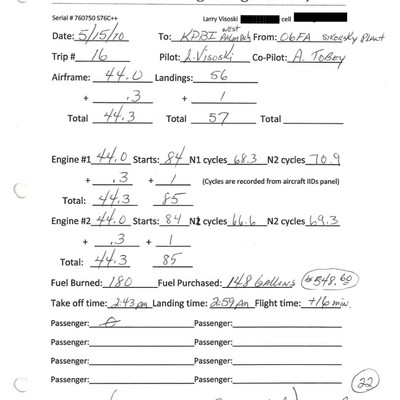 Serial # 760750 S76C++ Larry Visoski cell
Date: 5/15/10 To: KPBI West Palm Bch From: 06FA Sikorsky Plant
Trip # 16 Pilot: L. Visoski Co-Pilot: A. Tobey
Airframe: 44.0 Landings: 56
+ .3 + 1
Total 44.3 Total 57 Total
Engine #1 44.0 Starts: 84 N1 cycles 68.3 N2 cycles 70.9
+ .3 + 1 (Cycles are recorded from aircraft IIDs panel)
Total: 44.3 85
Engine #2 44.0 Starts: 84 N1 cycles 66.6 N2 cycles 69.3
+ .3 + 1
Total: 44.3 85
Fuel Burned: 180 Fuel Purchased: 148 Gallons $548.60
Take off time: 2:43 pm Landing time: 2:59 pm Flight time: +16 min.
Passenger: 0 Passenger:
Passenger: Passenger:
Passenger: Passenger:
Passenger: Passenger:
22